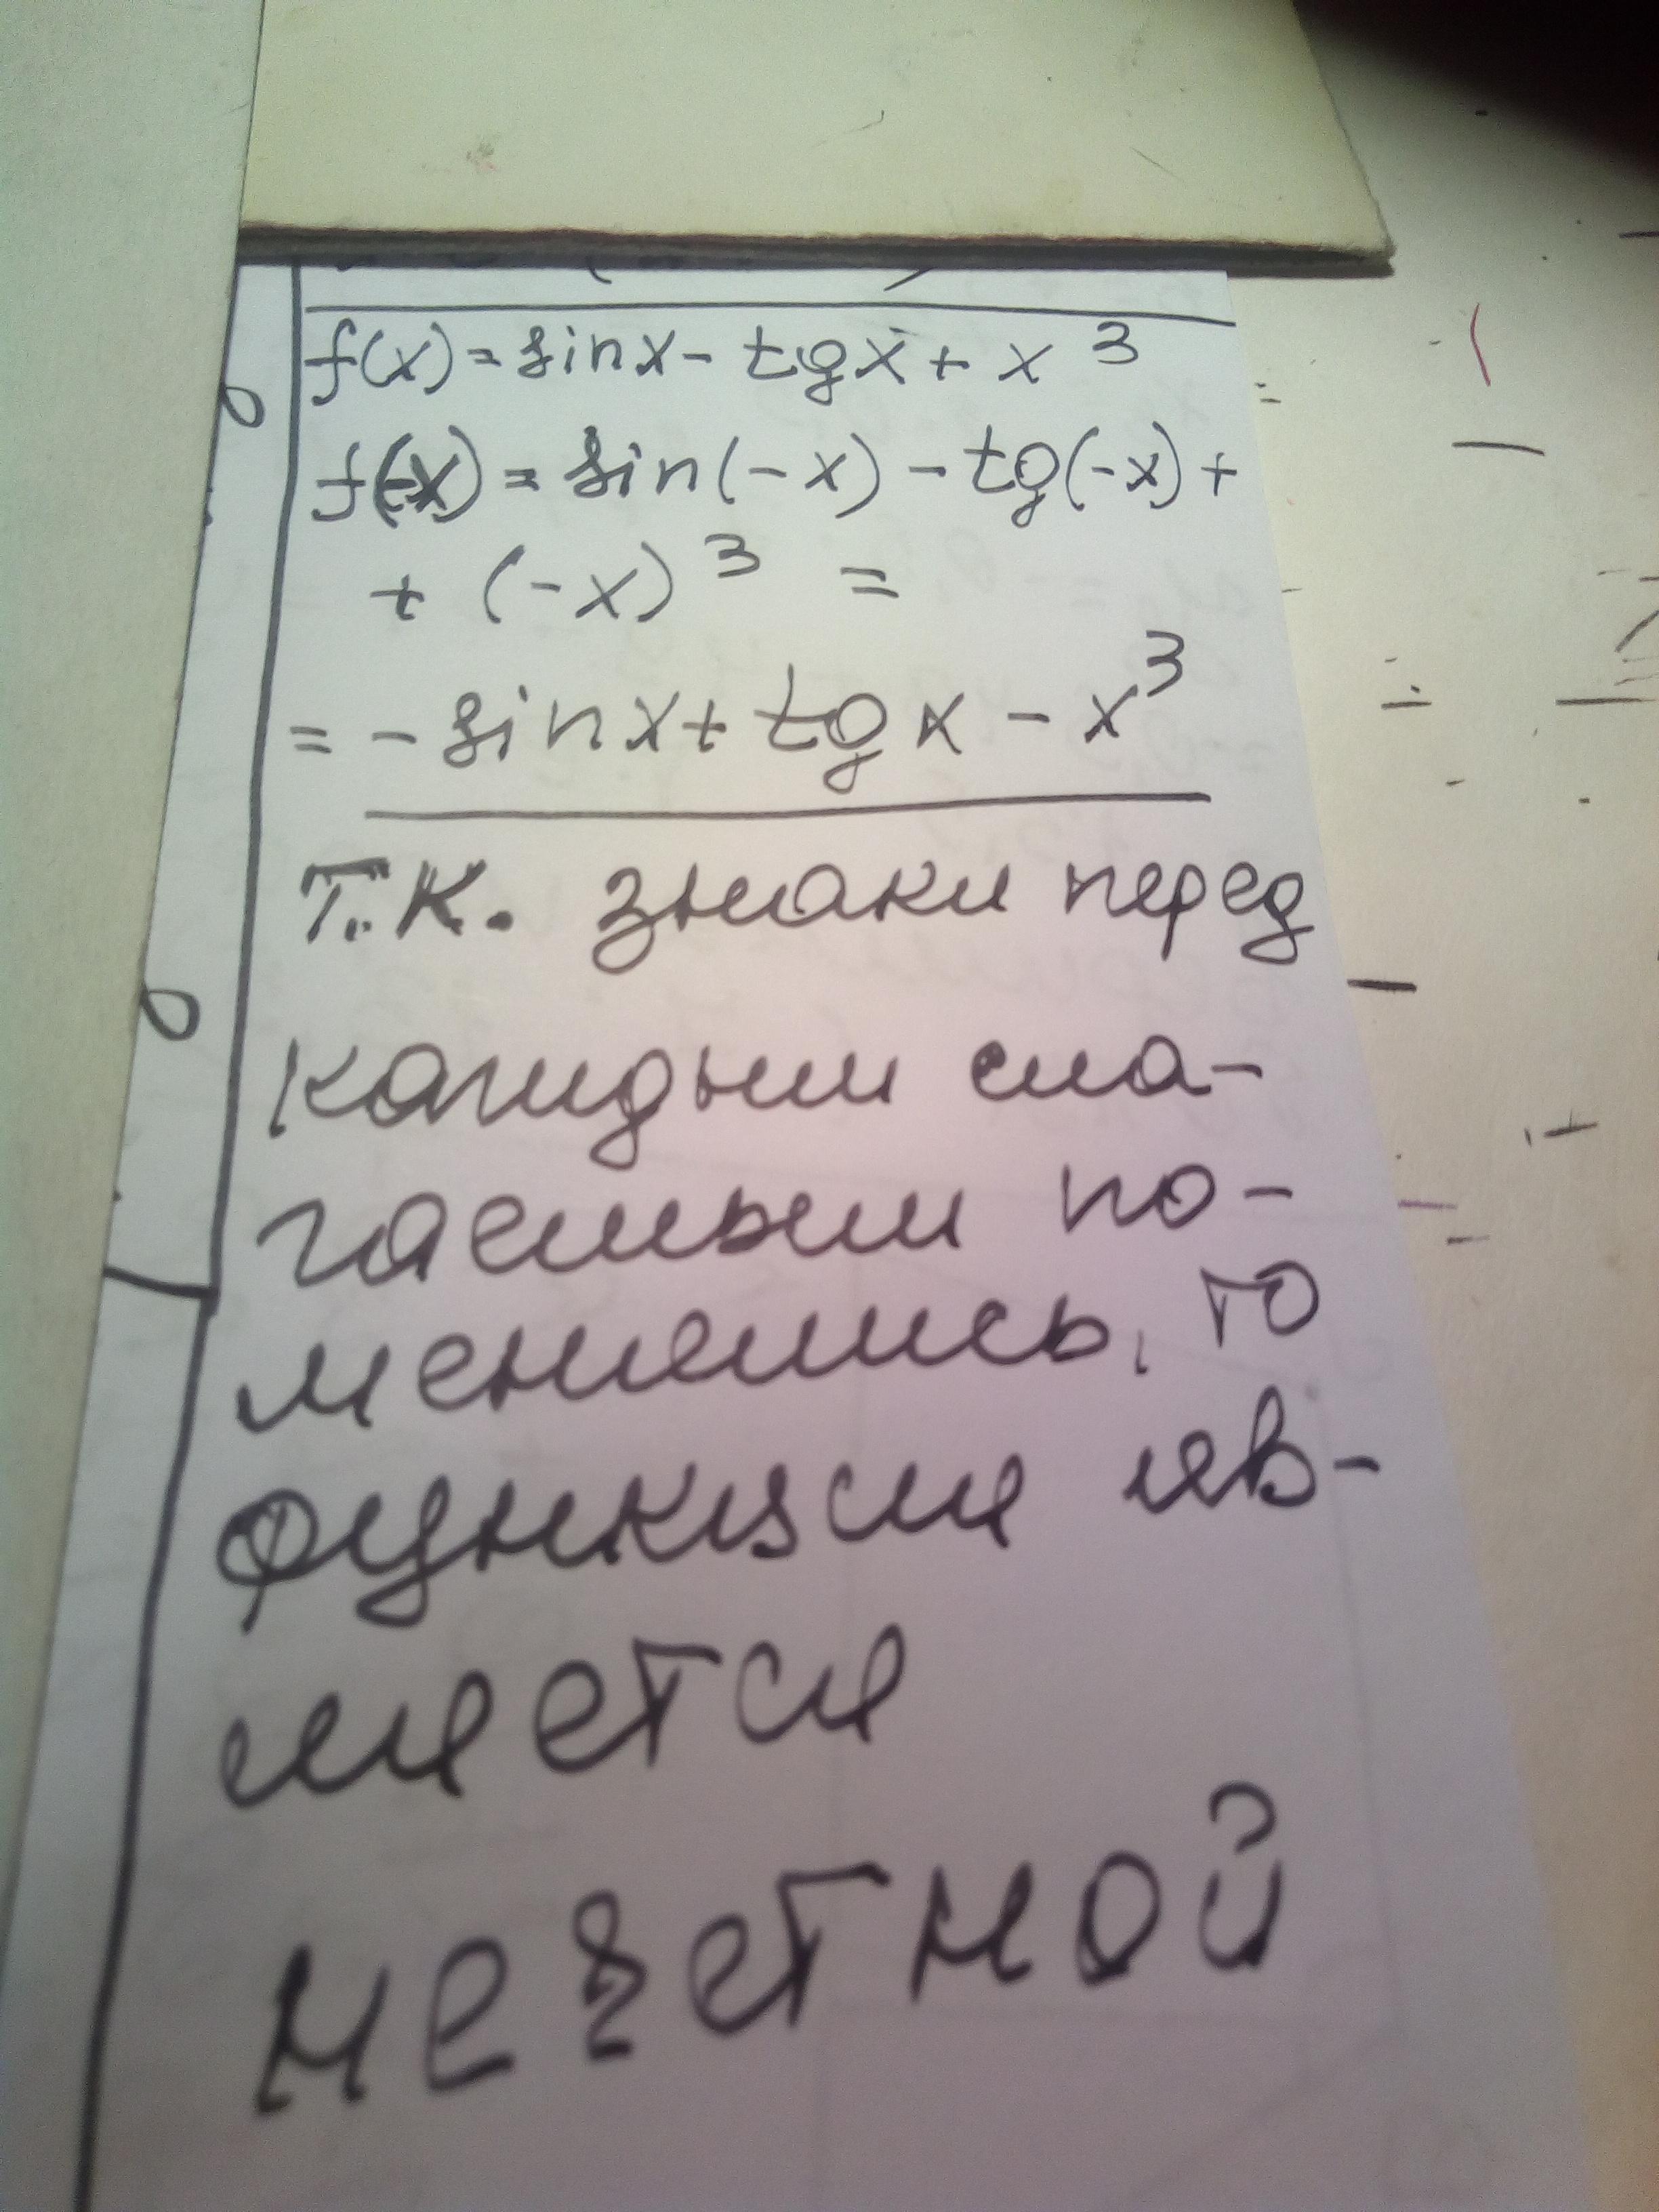 f(x) = sinx - tgx + x³
f(-x) = sin(-x) - tg(-x) +
+ (-x)³ =
= - sinx + tgx - x³
Т.К. знаки перед
каждым сла-
гаемым по-
менялись, то
функция яв-
ляется
нечетной